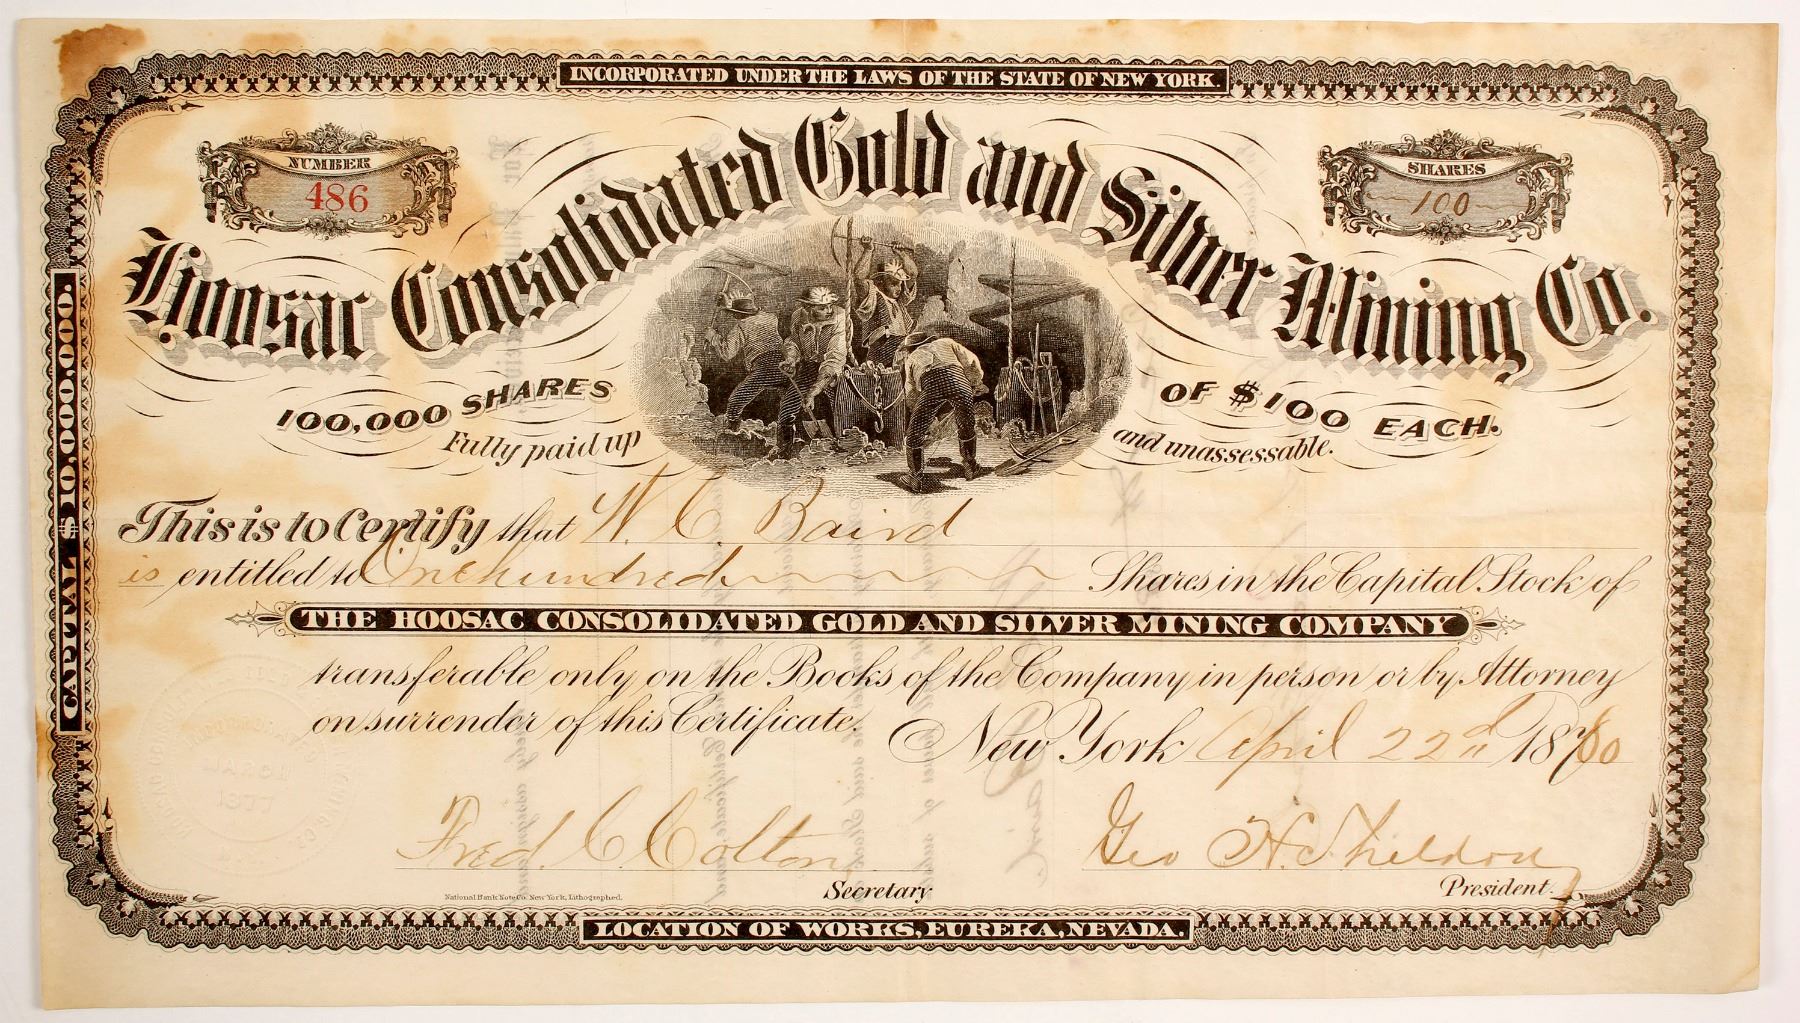 INCORPORATED UNDER THE LAWS OF THE STATE OF NEW YORK.
NUMBER
486
SHARES
100
Hoosac Consolidated Gold and Silver Mining Co.
100,000 SHARES OF $100 EACH.
Fully paid up and unassessable.
CAPITAL $10,000,000.
This is to Certify that W. C. Baird
is entitled to One hundred Shares in the Capital Stock of
THE HOOSAC CONSOLIDATED GOLD AND SILVER MINING COMPANY
transferable only on the Books of the Company in person or by Attorney
on surrender of this Certificate.
New York April 22d 1880
MARCH
1877
Fred. C. Colton
Secretary
Geo H. Sheldon
President.
National Bank Note Co. New York, Lithographed.
LOCATION OF WORKS, EUREKA, NEVADA.